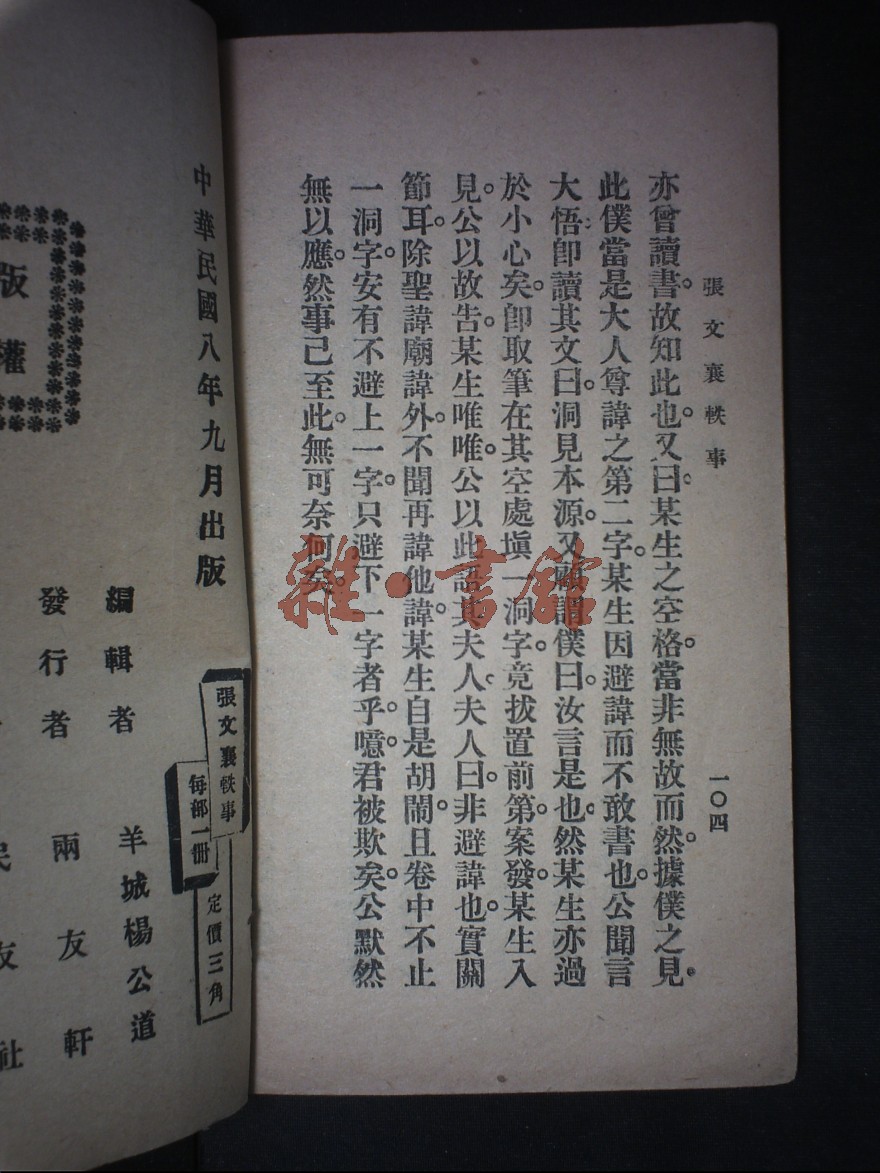 張文襄軼事
一〇四
亦曾讀書。故知此也。又曰。某生之空格。當非無故而然。據僕之見。
此僕當是大人尊諱之第二字。某生因避諱而不敢書也。公聞言
大悟。卽讀其文曰。洞見本源。又顧謂僕曰。汝言是也。然某生亦過
於小心矣。卽取筆在其空處塡一洞字。竟拔置前第。案發。某生入
見。公以故告。某生唯唯。公以此語其夫人。夫人曰。非避諱也。實關
節耳。除聖諱廟諱外。不聞再諱他諱。某生自是胡鬧。且卷中不止
一洞字。安有不避上一字。只避下一字者乎。噫。君被欺矣。公默然
無以應。然事已至此。無可奈何矣。
雜·書館
版權
中華民國八年九月出版
張文襄軼事
每部一冊
定價三角
編輯者 羊城楊公道
發行者 兩友軒
民友社